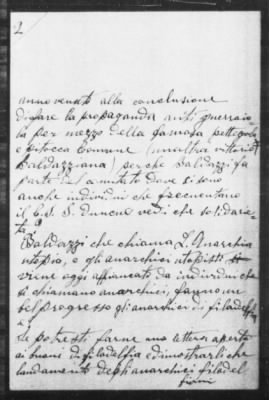 2
anno venuto alla conclusione
di fare la propaganda anti guerraio
la per mezzo della famosa pettegola
e pitocca Comune (un'altra vittoria
Baldazziana) perche Baldazzi fa
parte del comitato dove si sono
anche individui che frecuentano
il C. S. Dunene vedi che solidarie
ta?
Baldazzi che chiama L'Anarchia
utopia, e gli anarchici utopisti
viene oggi affiancato da individui che
si chiamano anarchici, fanno un
bel progresso gli anarchici di filadelfia
e?
Se potresti farne una lettera aperta
ai buoni di filadelfia e dimostrarli che
landamento degli anarchici filadel
fiani